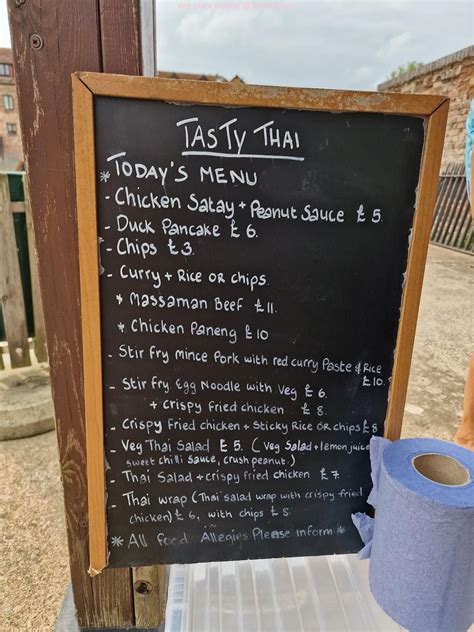 TASTY THAI
* TODAY'S MENU
- Chicken Satay + Peanut Sauce £5.
- Duck Pancake £6.
- Chips £3.
- Curry + Rice OR chips.
* Massaman Beef £11.
* Chicken Paneng £10
- Stir fry mince Pork with red curry Paste & Rice
£10
- Stir fry Egg Noodle with Veg £6.
+ crispy fried chicken £8.
- Crispy Fried chicken + Sticky Rice OR chips £8
- Veg Thai Salad £5. (Veg Salad + lemon juice
sweet chilli sauce, crush peanut.)
- Thai Salad + crispy fried chicken £7
- Thai wrap (Thai salad wrap with crispy fried
chicken) £6, with chips £8
* All food Allegies Please inform *